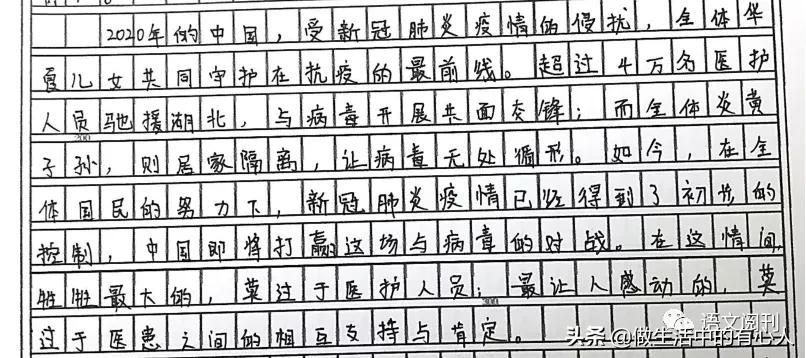 2020年的中国，受新冠肺炎疫情的侵扰，全体华
夏儿女共同守护在抗疫的最前线。超过4万名医护
人员驰援湖北，与病毒开展共面交锋；而全体炎黄
200
子孙，则居家隔离，让病毒无处循形。如今，在全
体国民的努力下，新冠肺炎疫情已经得到了初步的
控制，中国即将打赢这场与病毒的对战。在这情间，
最大的，莫过于医护人员；最让人感动的，莫
300
过于医患之间的相互支持与肯定。
语文阅刊
头条 @做生活中的有心人